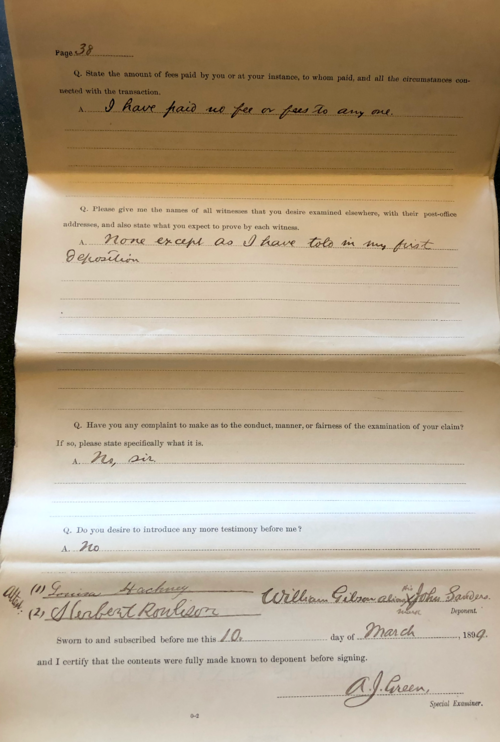 Page 38
Q. State the amount of fees paid by you or at your instance, to whom paid, and all the circumstances con-
nected with the transaction.
A. I have paid no fee or fees to any one.
Q. Please give me the names of all witnesses that you desire examined elsewhere, with their post-office
addresses, and also state what you expect to prove by each witness.
A. None except as I have told in my first
deposition
Q. Have you any complaint to make as to the conduct, manner, or fairness of the examination of your claim?
If so, please state specifically what it is.
A. No, sir
Q. Do you desire to introduce any more testimony before me?
A. No
Attest:
(1) Louisa Hackney
his
William Gibson alias X John Sanders
mark
(2) Herbert Rowlison
Deponent.
Sworn to and subscribed before me this 10. day of March, 1899.
and I certify that the contents were fully made known to deponent before signing.
A. J. Green,
Special Examiner.